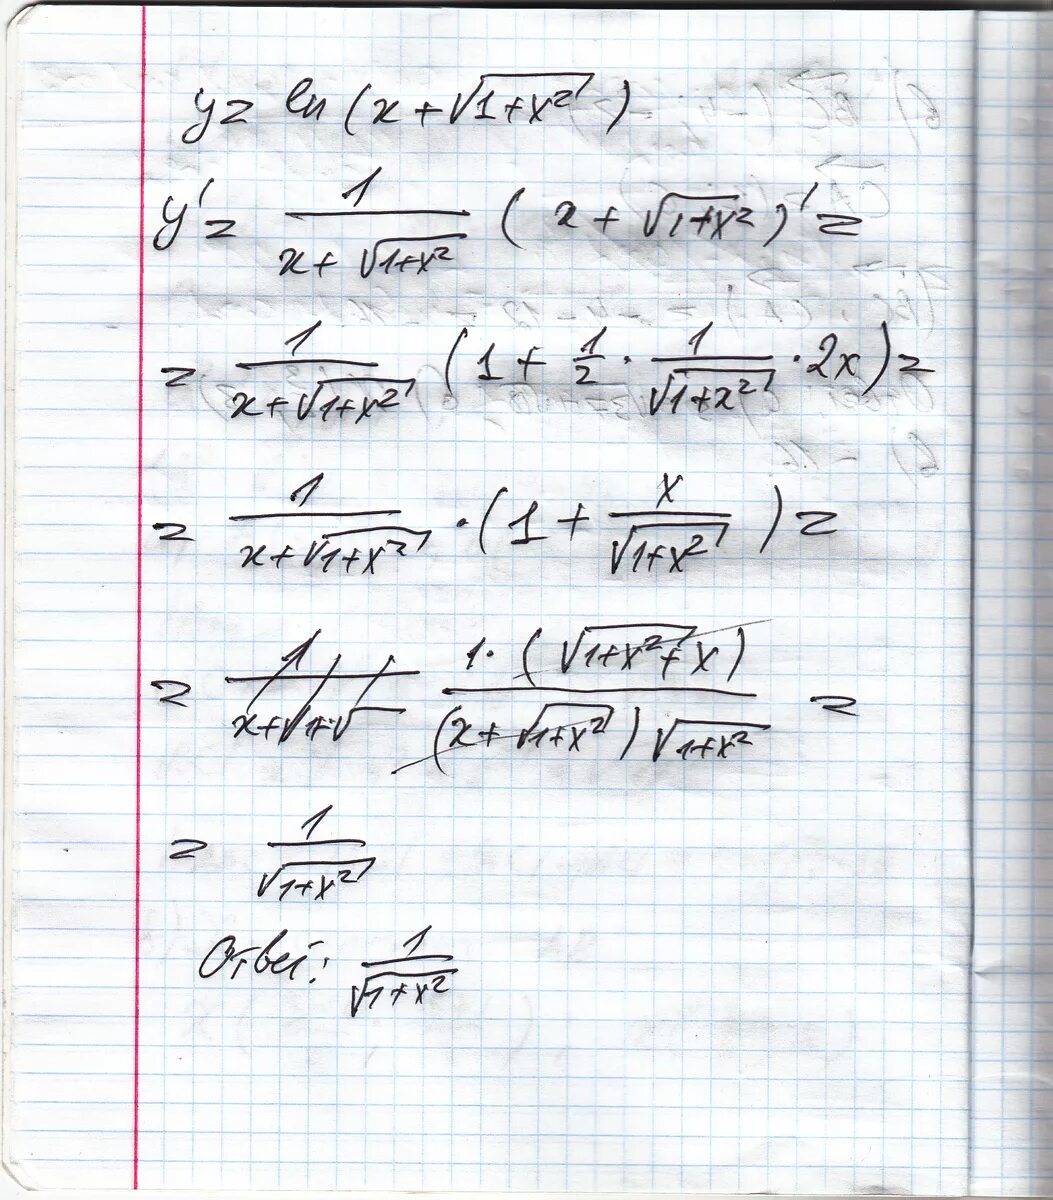 y = ln (x + √(1+x²))
y' = 1/(x + √(1+x²)) (x + √(1+x²))' =
= 1/(x + √(1+x²)) (1 + 1/2 · 1/√(1+x²) · 2x) =
= 1/(x + √(1+x²)) · (1 + x/√(1+x²)) =
= 1/(x+√1+√) 1· (√(1+x²) + x)/((x + √(1+x²)) √(1+x²)) =
= 1/√(1+x²)
Ответ: 1/√(1+x²)